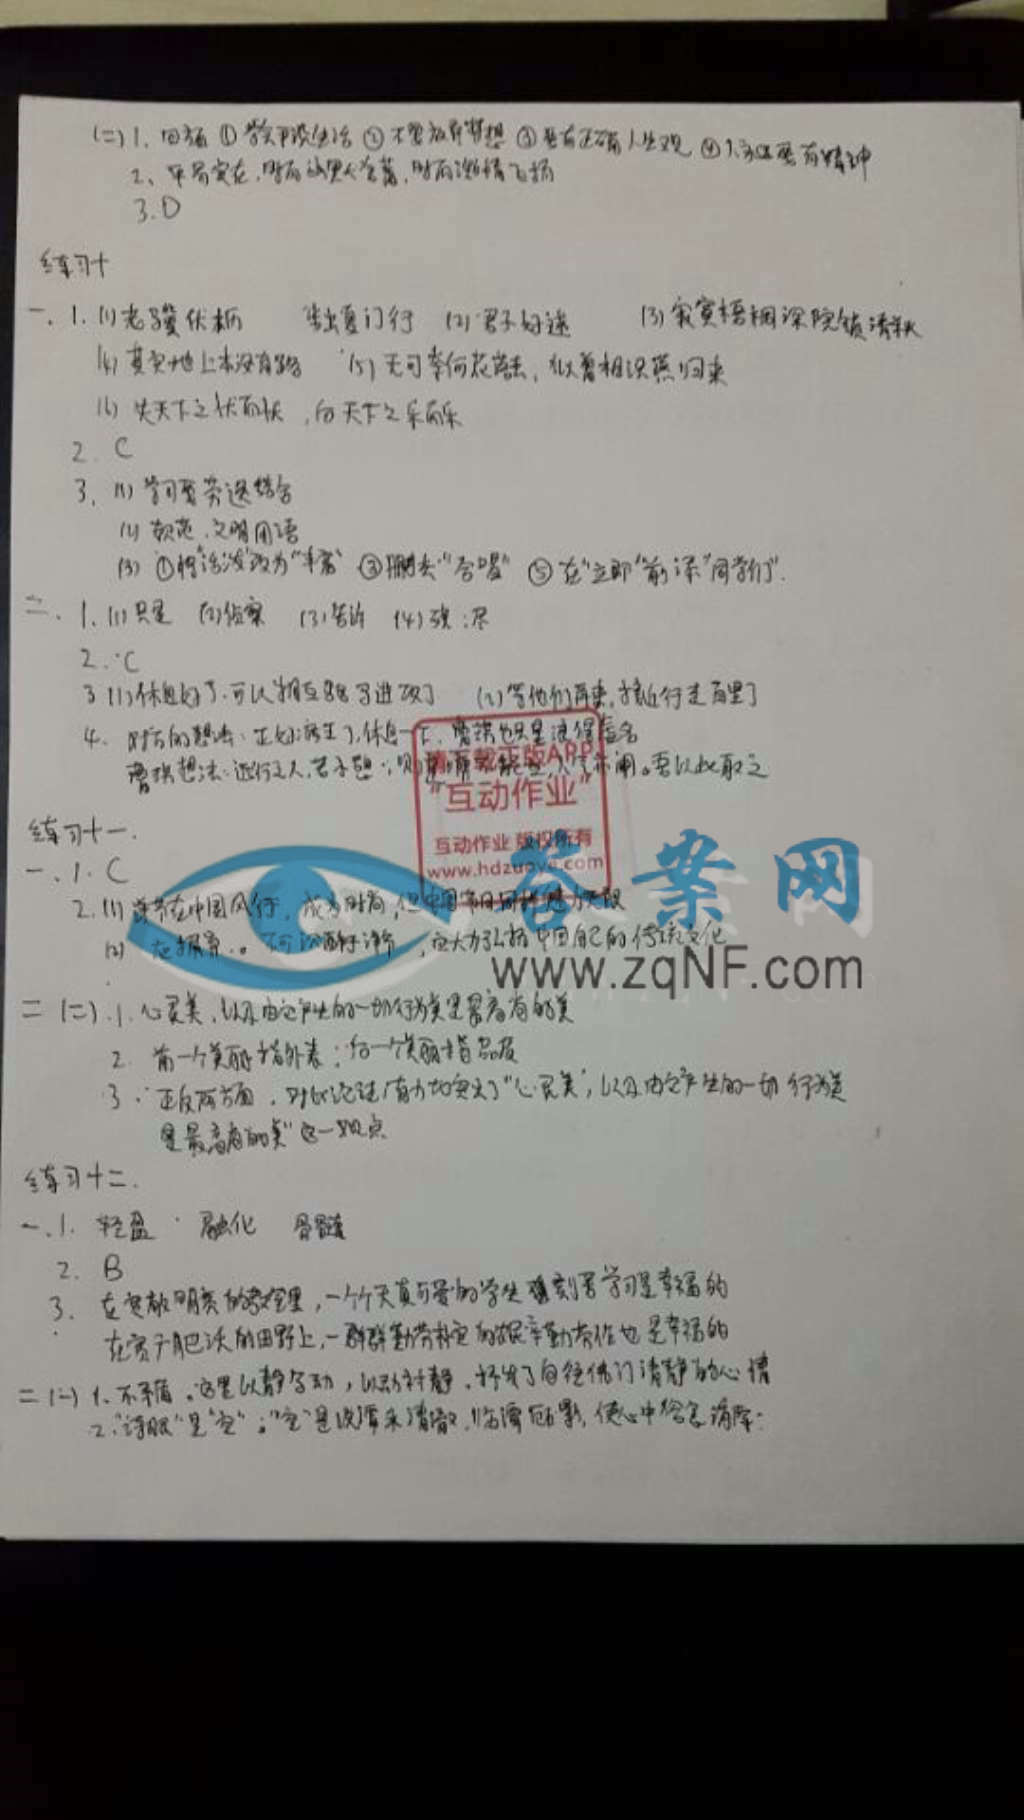 (二) 1. 回顾 ① 学会 生活 ② 不要放弃梦想 ③ 要有正确人生观 ④ 要有精神
2、平易实在,时有 ,时有激情飞扬
3. D
练习十
一、1. (1) 老骥伏枥 步出夏门行 (2) 君子好逑 (3) 寂寞梧桐深院锁清秋
(4) 其实地上本没有路 (5) 无可奈何花落去,似曾相识燕归来
(6) 先天下之忧而忧,后天下之乐而乐
2. C
3. (1) 学习要劳逸结合
(2) 规范、文明用语
(3) ①将"活泼"改为"丰富" ②删去"合唱" ③ 在"立即"前添"同学们".
二、1. (1) 只是 (2) 侦察 (3) 答许 (4) 强:尽
2. C
3 (1) 休息好了,可以 进攻了 (2) 等他们再来,接近行走百里了
4. 对方的想法:正好 了,休息一下, 也只是浪得虚名
曹玮想法:远行之人,若 ,则 ,人气亦阑。吾以此取之
请下载正版APP
"互动作业"
互动作业 版权所有
www.hdzuoye.com
练习十一.
答案网
一、1. C
2. (1) 洋节在中国风行,成为时尚,但中国节日
(2) ,应大力弘扬中国自己的传统文化
www.zqNF.com
二 (二). 1. 心灵美,以及由它产生的一切行为美是最高尚的美
2. 前一个美丽指外表;后一个美丽指品质
3. 正反两方面,对比论证,有力地突出了"心灵美,以及由它产生的一切行为美
是最高尚的美"这一观点
练习十二.
一、1. 轻盈 融化 骨髓
2. B
3. 在宽敞明亮的教室里,一个个天真可爱的学生 刻苦学习是幸福的
在富于肥沃的田野上,一群群勤劳朴实的农民辛勤劳作也是幸福的
二 (一) 1. 不矛盾。这里以静写动,以动衬静,抒发了向往佛门清静的心情
2. "诗眼"是"空"。"空"是说潭水清澈,临潭顾影,使心中俗念消除.